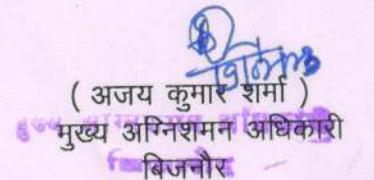 ( अजय कुमार शर्मा )
मुख्य अग्निशमन अधिकारी
बिजनौर